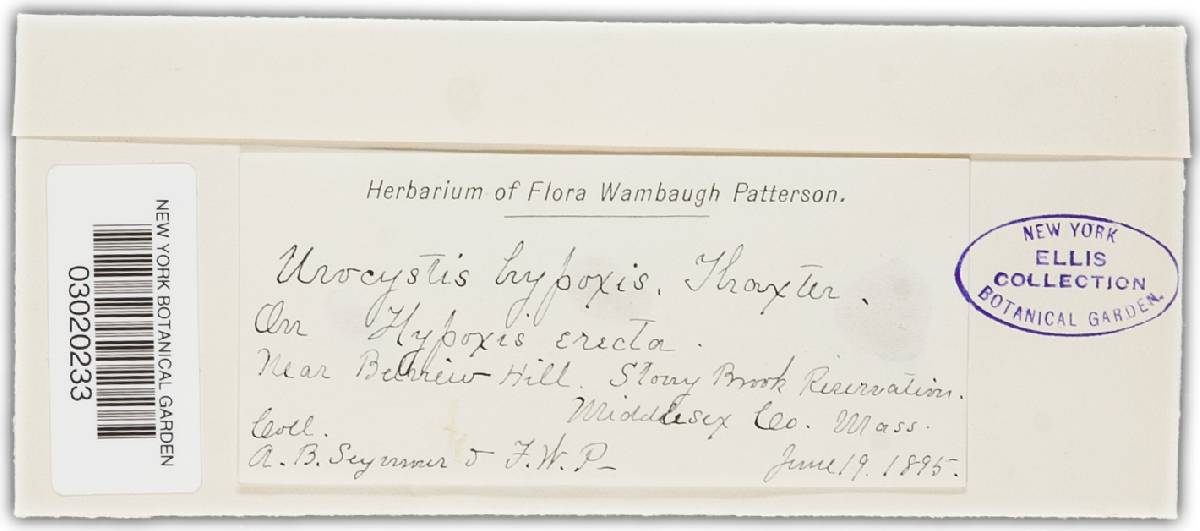 Herbarium of Flora Wambaugh Patterson.
Urocystis hypoxis. Thaxter.
On Hypoxis erecta.
Near Bellview Hill. Stony Brook Reservation.
Middlesex Co. Mass.
Coll.
A. B. Seymour & F. W. P-
June 19. 1895.
NEW YORK BOTANICAL GARDEN
03020233
NEW YORK
ELLIS
COLLECTION
BOTANICAL GARDEN.